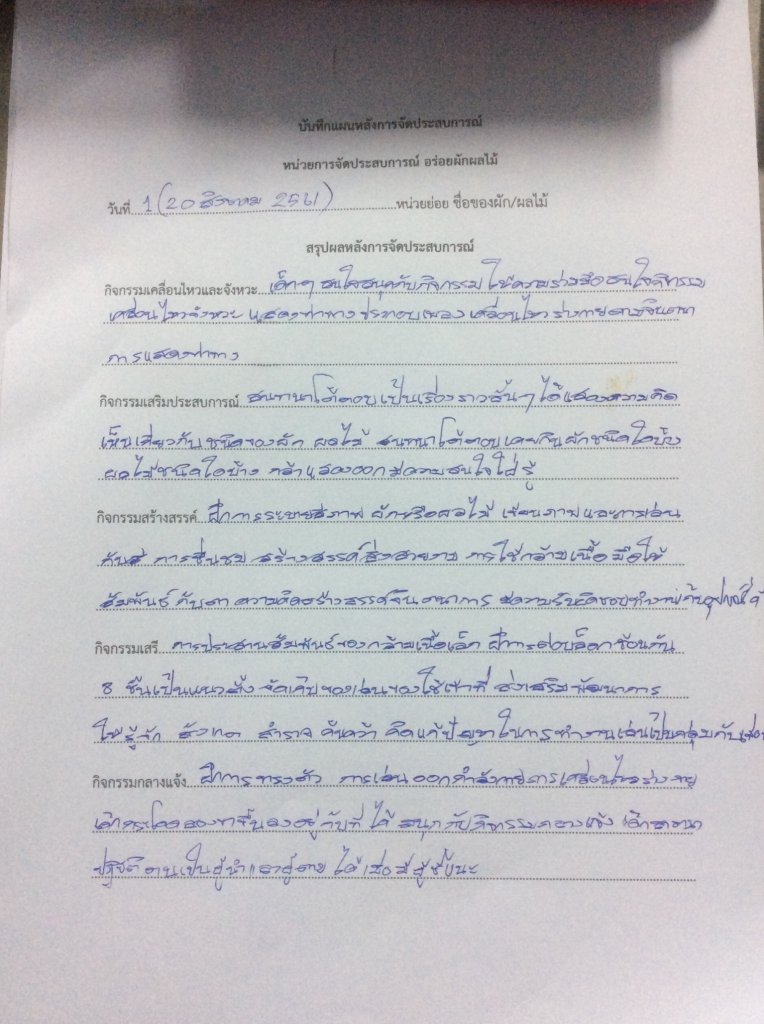 บันทึกแผนหลังการจัดประสบการณ์
หน่วยการจัดประสบการณ์ อร่อยผักผลไม้
วันที่ 1 (20 สิงหาคม 2561) หน่วยย่อย ชื่อของผัก/ผลไม้
สรุปผลหลังการจัดประสบการณ์
กิจกรรมเคลื่อนไหวและจังหวะ เด็กๆ สนใจสนุกกับกิจกรรม ให้ความร่วมมือสนใจกิจกรรม
เคลื่อนไหวจังหวะ แสดงท่าทางประกอบเพลง เคลื่อนไหวร่างกายตามจินตนา
การแสดงท่าทาง
กิจกรรมเสริมประสบการณ์ สนทนาโต้ตอบเป็นเรื่องราวสั้นๆ ได้แสดงความคิด
เห็นเกี่ยวกับชนิดของผัก ผลไม้ สนทนาโต้ตอบเคยกินผักชนิดใดบ้าง
ผลไม้ชนิดใดบ้าง กล้าแสดงออกมีความสนใจใฝ่รู้
กิจกรรมสร้างสรรค์ ฝึกการระบายสีภาพ ผักหรือผลไม้ เขียนภาพและการเล่น
กับสี การชื่นชม สร้างสรรค์สิ่งสวยงาม การใช้กล้ามเนื้อมือให้
สัมพันธ์กับตา ความคิดสร้างสรรค์จินตนาการ มีความรับผิดชอบทำงาน
กิจกรรมเสรี การประสานสัมพันธ์ของกล้ามเนื้อเล็ก ฝึการต่อบล็อกซ้อนกัน
8 ชิ้นเป็นแนวตั้ง จัดเก็บของเล่นของใช้เข้าที่ ส่งเสริมพัฒนาการ
ให้รู้จัก สังเกต สำรวจ ค้นคว้า คิดแก้ปัญหาในการทำงานเล่นเป็นกลุ่มกับเพื่อน
กิจกรรมกลางแจ้ง ฝึการทรงตัว การเล่นออกกำลังกายการเคลื่อนไหวร่างกาย
เด็กกระโดดสองขาขึ้นลงอยู่กับที่ ได้ สนุกกับกิจกรรมกลางแจ้ง
ปฏิบัติตนเป็นผู้นำและผู้ตาม ได้เมื่อมีผู้ชี้แนะ